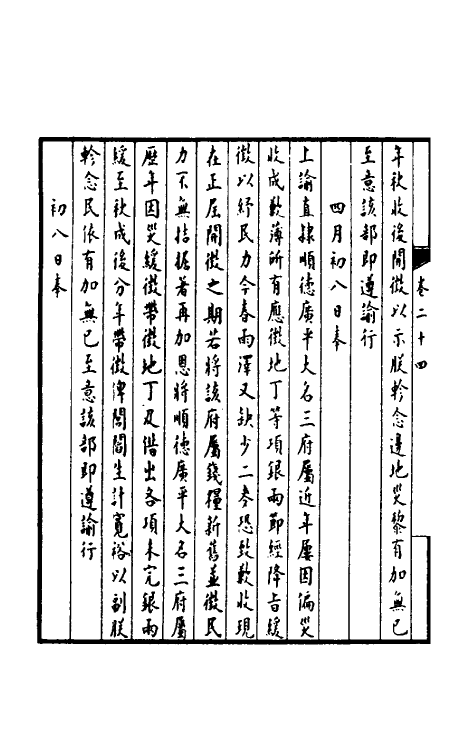 卷二十四
年秋收後開徵以示朕軫念邊地災黎有加無已
至意該部即遵諭行
四月初八日奉
上諭直隸順德廣平大名三府屬近年屢因偏災
收成歉薄所有應徵地丁等項銀兩節經降旨緩
徵以紓民力今春雨澤又缺少二麥恐致歉收現
在正屆開徵之期若將該府屬錢糧新舊並徵民
力不無拮据著再加恩將順德廣平大名三府屬
歷年因災緩徵帶徵地丁及借出各項未完銀兩
緩至秋成後分年帶徵俾閭閻生計寬裕以副朕
軫念民依有加無已至意該部即遵諭行
初八日奉